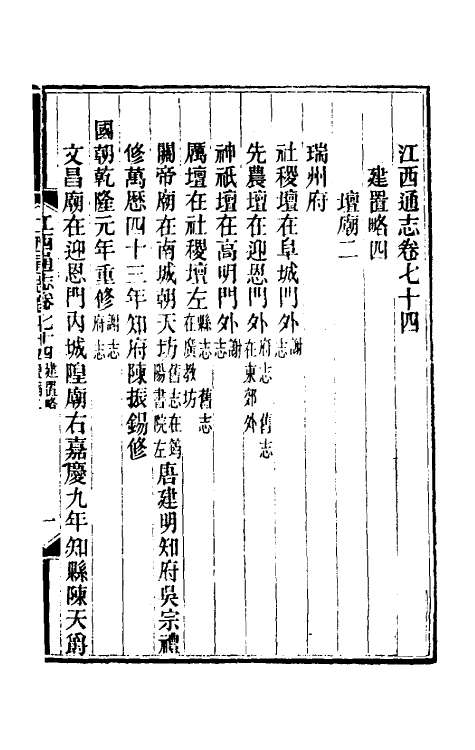 江西通志卷七十四
建置略四
壇廟二
瑞州府
社稷壇在阜城門外謝志
先農壇在迎恩門外府志 舊志在東郊外
神祇壇在高明門外謝志
厲壇在社稷壇左縣志 舊志在廣教坊
關帝廟在南城朝天坊舊志在筠陽書院左唐建明知府吳宗禮
修萬歷四十三年知府陳振錫修
國朝乾隆元年重修謝志府志
文昌廟在迎恩門內城隍廟右嘉慶九年知縣陳天爵
江西通志卷七十四 建置略 一